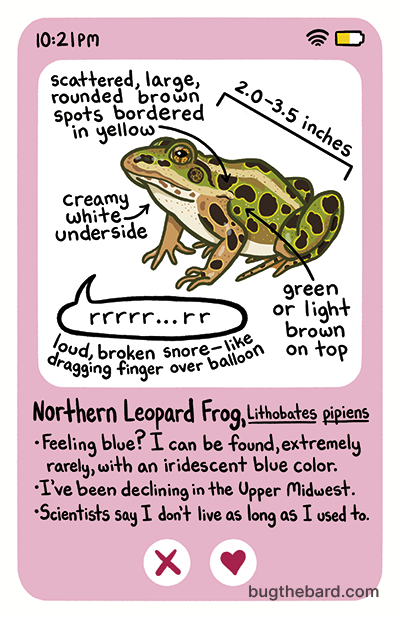 10:21PM
scattered, large,
rounded brown
spots bordered
in yellow
2.0-3.5 inches
creamy
white
underside
green
or light
brown
on top
rrrrr...rr
loud, broken snore-like
dragging finger over balloon
Northern Leopard Frog, Lithobates pipiens
•Feeling blue? I can be found, extremely
rarely, with an iridescent blue color.
•I've been declining in the Upper Midwest.
•Scientists say I don't live as long as I used to.
bugthebard.com